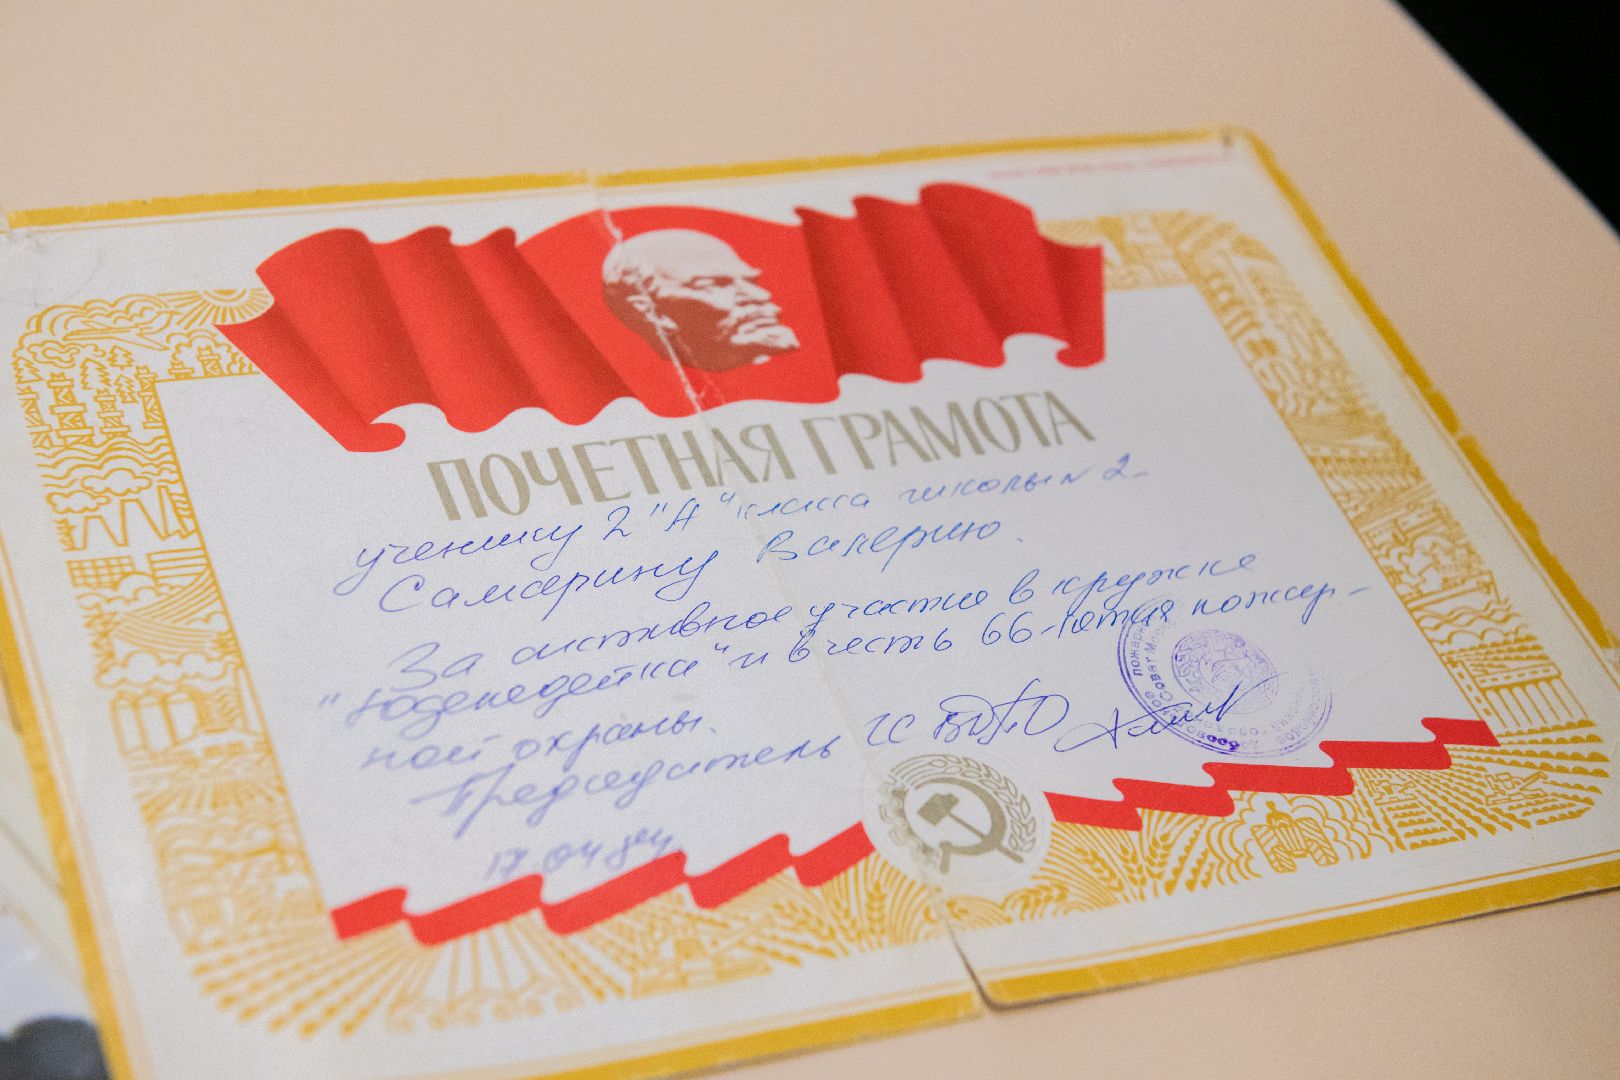 ПОЧЕТНАЯ ГРАМОТА
ученику 2 "А" класса школы № 2
Самарину Валерию.
За активное участие в кружке
и в честь 66-летия пожар-
ной охраны.
Председатель ГС ВДПО
17.04.84